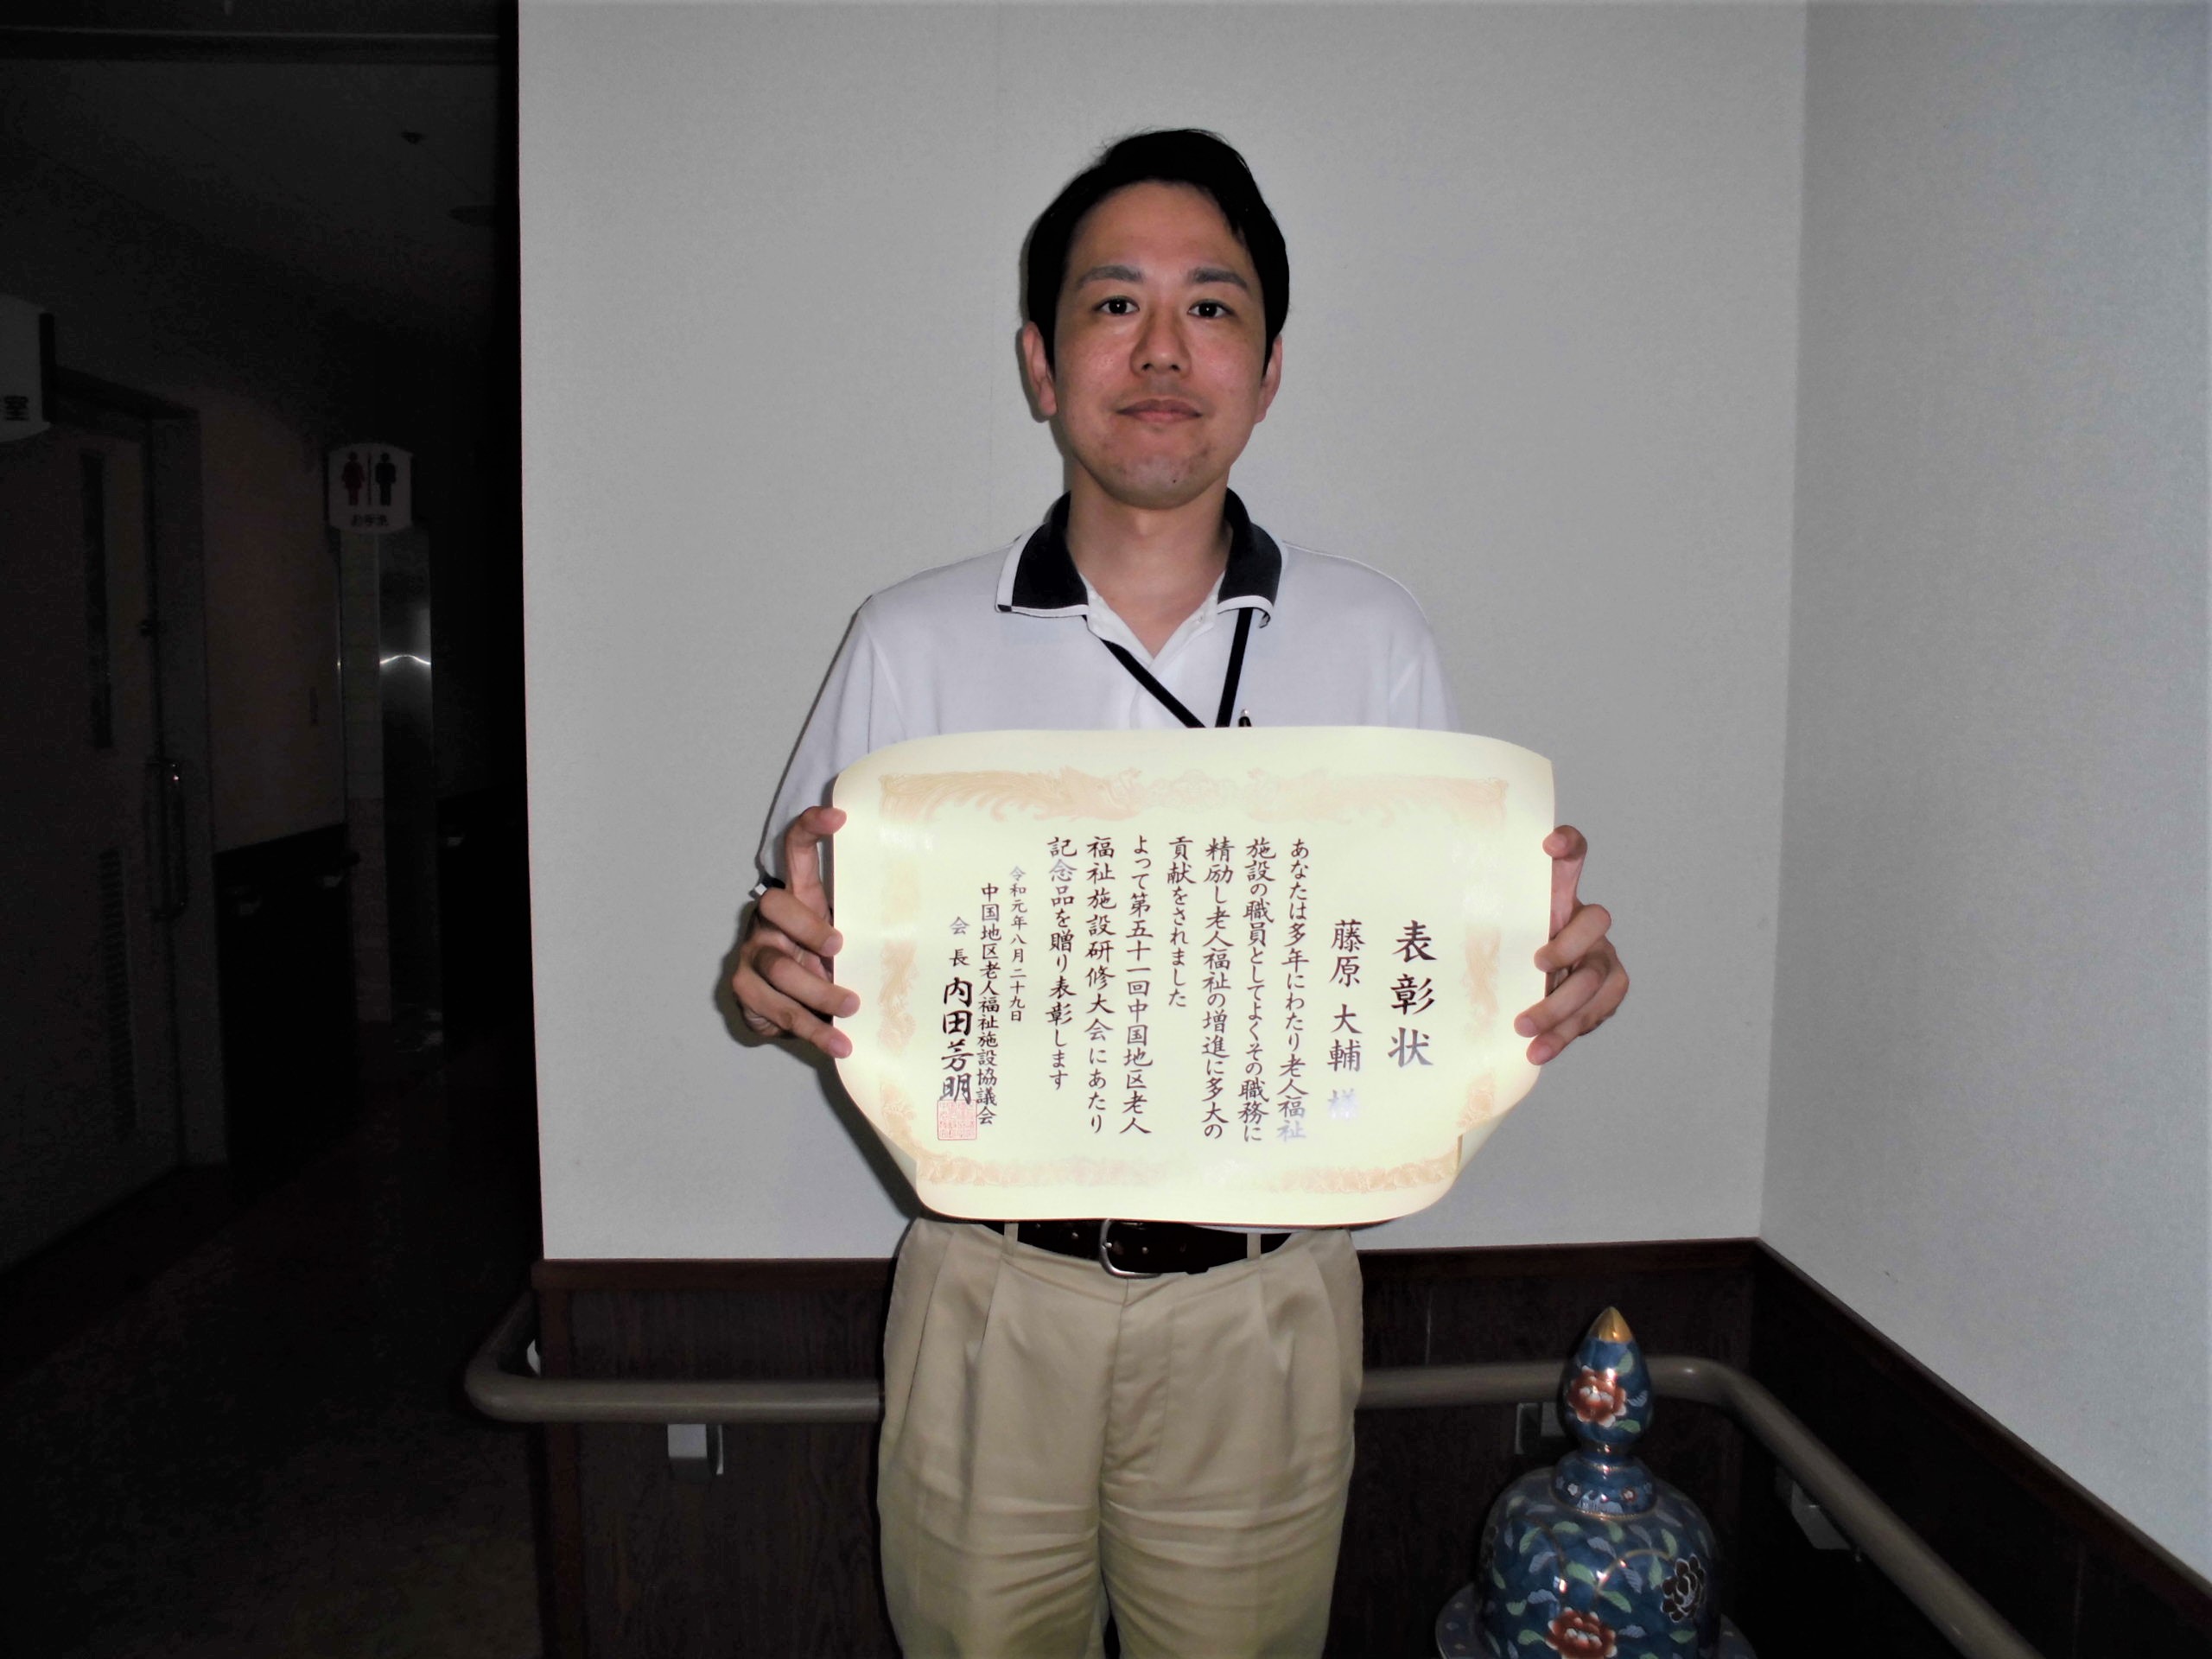 表彰状
藤原 大輔 様
あなたは多年にわたり老人福祉
施設の職員としてよくその職務に
精励し老人福祉の増進に多大の
貢献をされました
よって第五十一回中国地区老人
福祉施設研修大会にあたり
記念品を贈り表彰します
令和元年八月二十九日
中国地区老人福祉施設協議会
会長 内田芳明
お手洗
室